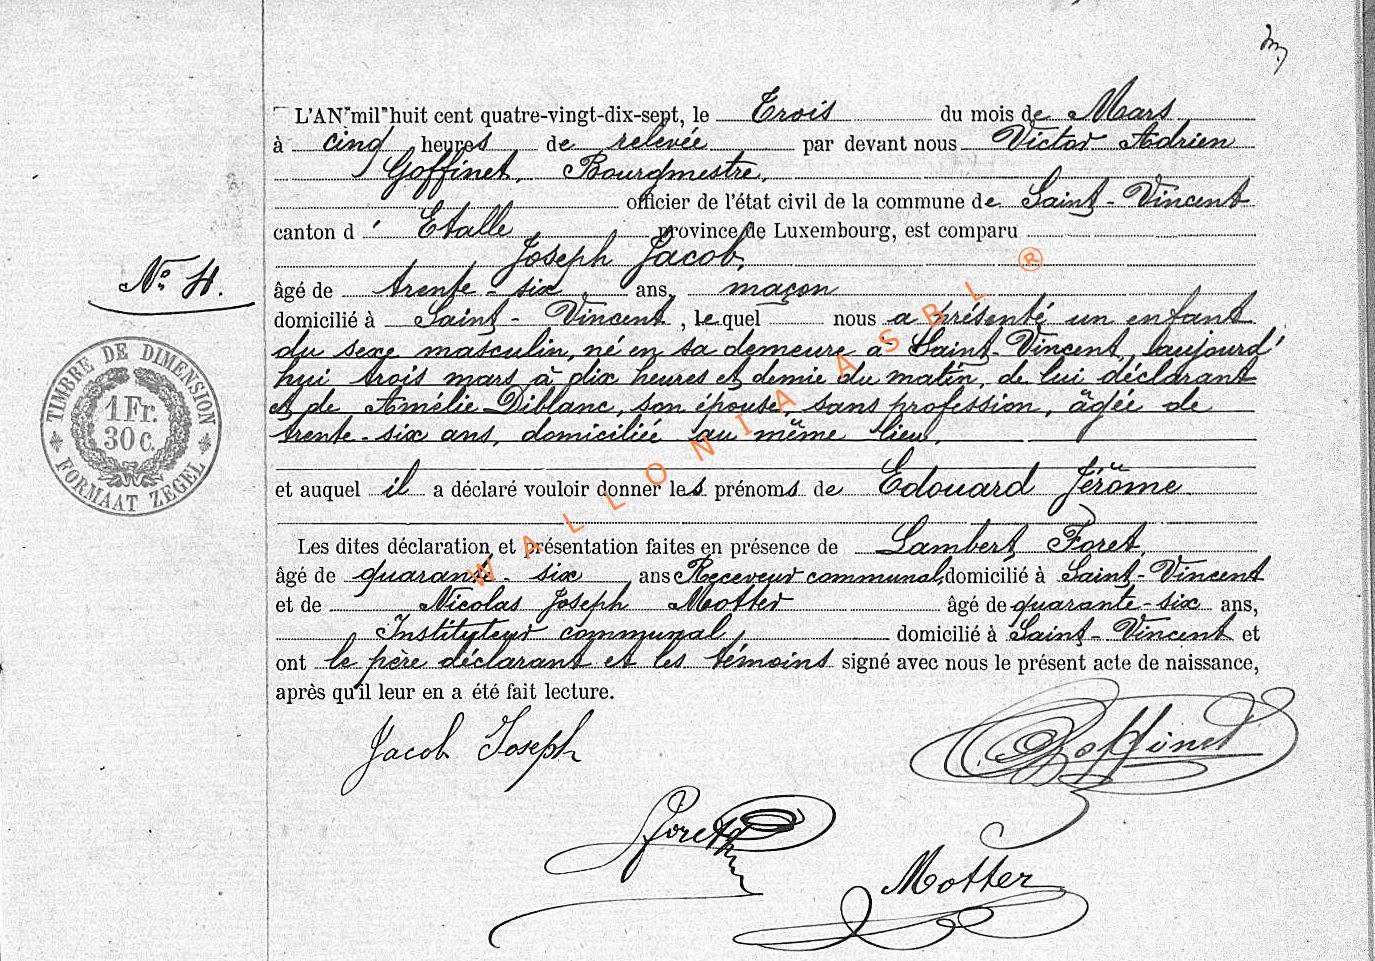 L'AN mil huit cent quatre-vingt-dix-sept, le Trois du mois de Mars
à cinq heures de relevée par devant nous Victor Adrien
Goffinet, Bourgmestre,
officier de l'état civil de la commune de Saint-Vincent
canton d' Etalle province de Luxembourg, est comparu
Joseph Jacob,
N° 4.
âgé de trente-six ans, maçon
domicilié à Saint-Vincent, lequel nous a présenté un enfant
du sexe masculin, né en sa demeure à Saint-Vincent, aujourd'
hui trois mars à dix heures et demie du matin, de lui déclarant
et de Amélie Diblanc, son épouse, sans profession, âgée de
trente-six ans, domiciliée au même lieu.
TIMBRE DE DIMENSION
1 Fr.
30 C.
FORMAAT ZEGEL
et auquel il a déclaré vouloir donner les prénoms de Edouard Jérôme
Les dites déclaration et présentation faites en présence de Lambert Foret,
âgé de quarante-six ans Receveur communal, domicilié à Saint-Vincent
et de Nicolas Joseph Motter âgé de quarante-six ans,
Instituteur communal, domicilié à Saint-Vincent et
ont le père déclarant et les témoins signé avec nous le présent acte de naissance,
après qu'il leur en a été fait lecture.
Jacob Joseph
Goffinet
Foret
Motter
WALLONIA ASBL ®